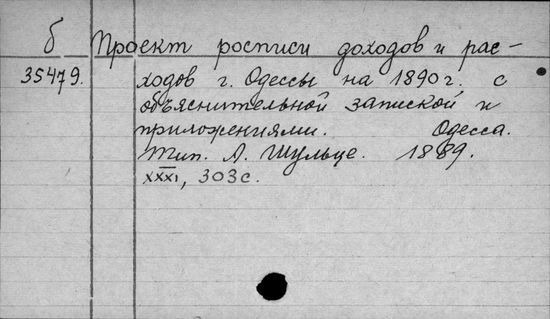 б Проект росписи доходов и рас-
35479. ходов г. Одессы на 1890 г. с
объяснительной запиской и
приложениями. Одесса.
Тип. А. Шульце. 1889.
XXXI, 303 с.